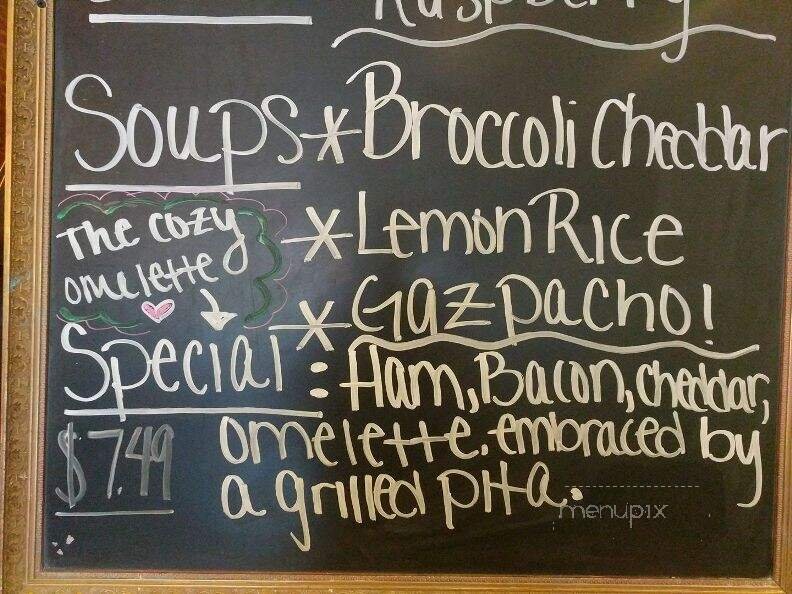 Raspberry
Soups * Broccoli Cheddar
* Lemon Rice
* Gazpacho!
The cozy
omelette
Special : Ham, Bacon, cheddar,
omelette. embraced by
a grilled pita.
$7.49
menupix